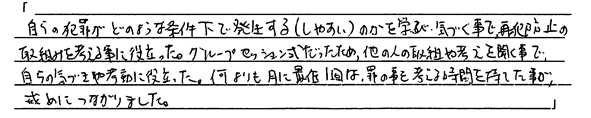 「
自らの犯罪がどのような条件下で発生する(しやすい)のかを学び、気づく事で、再犯防止の
取組みを考える事に役立った。グループセッション式だったため、他の人の取組や考えを聞く事で、
自らの気づきや考動に役立った。何よりも月に最低1回は、罪の事を考える時間を持てた事が、
戒めにつながりました。
」